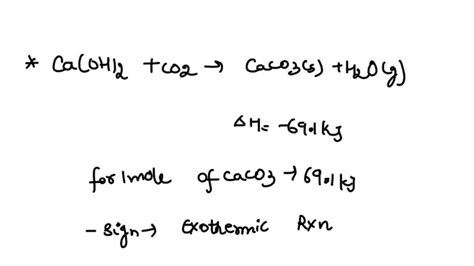 * Ca(OH)2 + CO2 → CaCO3(s) + H2O(g)
ΔH = -69.1 kJ
for 1 mole of CaCO3 → 69.1 kJ
- sign → Exothermic Rxn